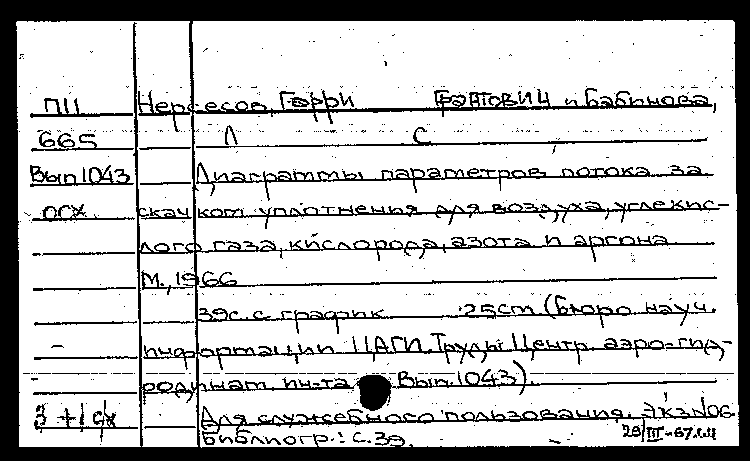 П11 Нерсесов, Гарри Грантович и Бабинова,
665 Л С
Вып 1043 Диаграммы параметров потока за
осх. скачком уплотненья для воздуха, углекис-
лого газа, кислорода, азота и аргона
М., 1966
39с. с график 25cm (Бюро науч.
информации ЦАГИ. Труды Центр. аэро-гид-
родинам. ин-та Вып. 1043).
3 + 1 сх Для служебного пользования. Экз №06
Библиогр.: с. 39.
28/III-67.